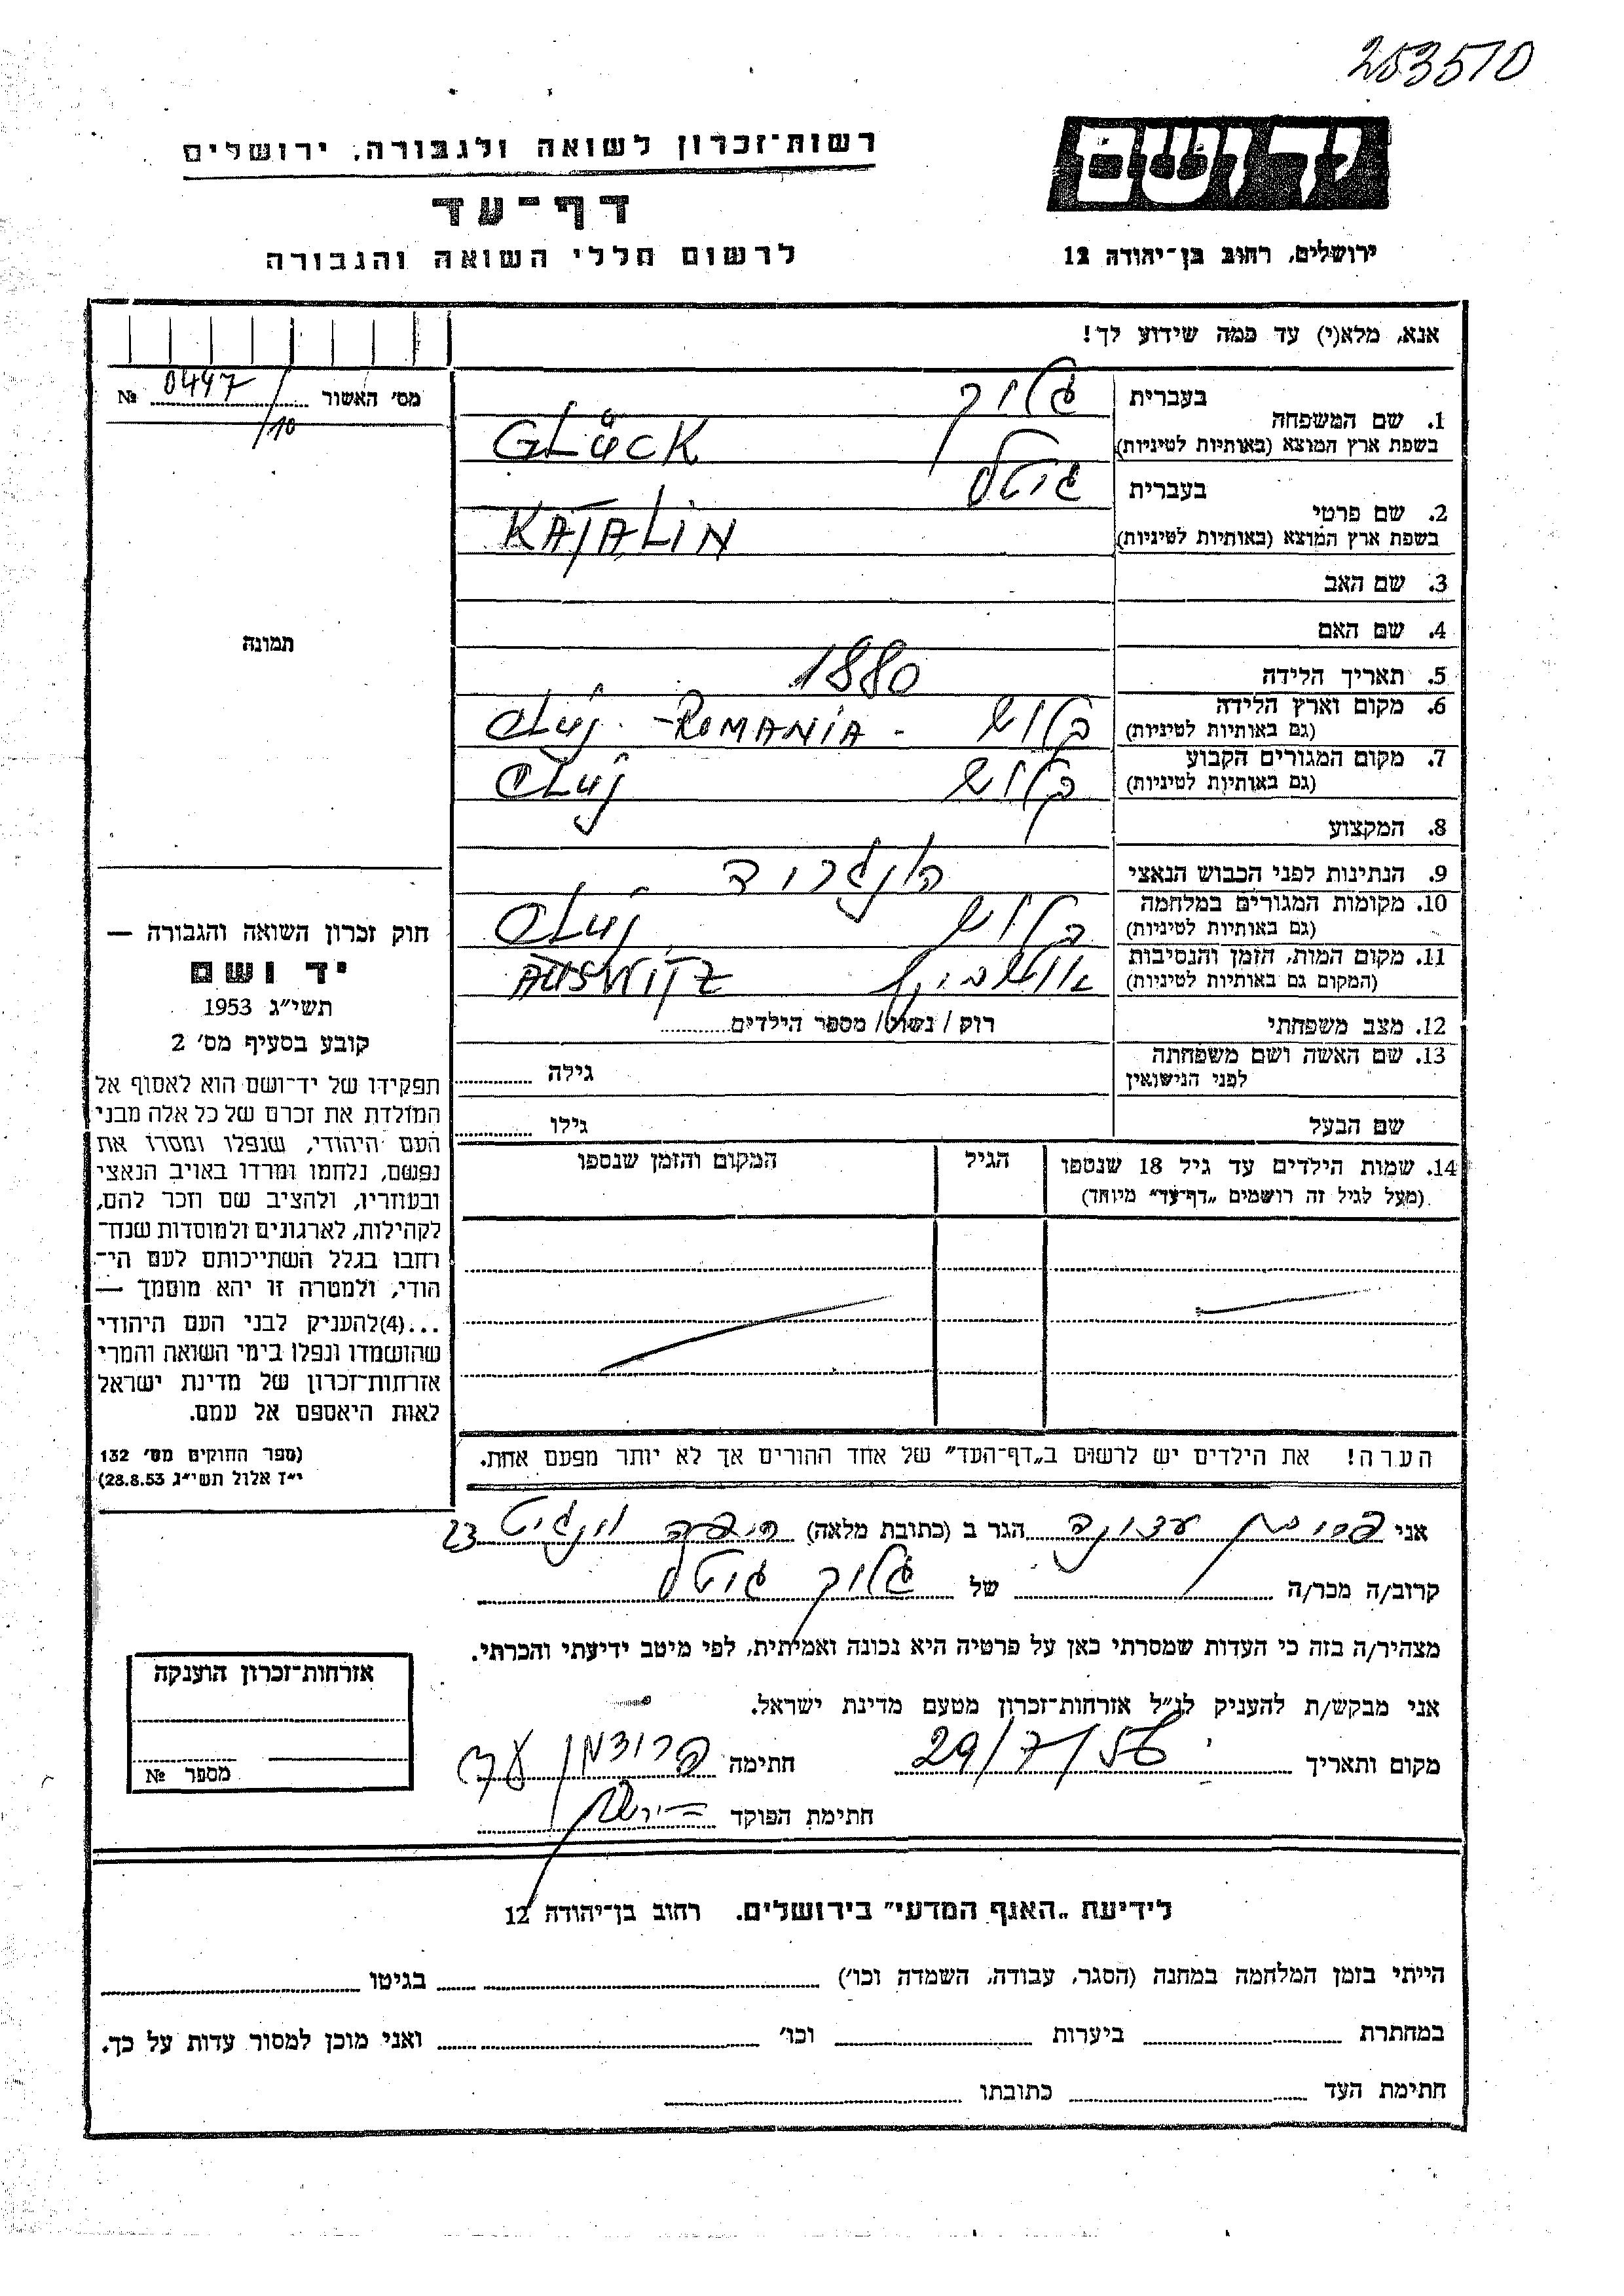 253510
יד ושם
ירושלים, רחוב בן־יהודה 12
רשות־זכרון לשואה ולגבורה, ירושלים
דף־עד
לרשום חללי השואה והגבורה
אנא, מלא(י) עד כמה שידוע לך!
מס׳ האשור 0447/10 №
תמונה
חוק זכרון השואה והגבורה —
יד ושם
תשי״ג 1953
קובע בסעיף מס׳ 2
תפקידו של יד־ושם הוא לאסוף אל
המולדת את זכרם של כל אלה מבני
העם היהודי, שנפלו ומסרו את
נפשם, נלחמו ומרדו באויב הנאצי
ובעוזריו, ולהציב שם וזכר להם,
לקהילות, לארגונים ולמוסדות שנח־
רחבו בגלל השתייכותם לעם הי־
הודי, ולמטרה זו יהא מוסמך —
...(4)להעניק לבני העם היהודי
שהושמדו ונפלו בימי השואה והמרי
אזרחות־זכרון של מדינת ישראל
לאות היאספם אל עמם.
(ספר החוקים מס׳ 132
י״ז אלול תשי״ג 28.8.53)
1. שם המשפחה
בעברית גליק
בשפת ארץ המוצא (באותיות לטיניות) GLÜCK
2. שם פרטי
בעברית גיטל
בשפת ארץ המוצא (באותיות לטיניות) KATALIN
3. שם האב
4. שם האם
5. תאריך הלידה 1880
6. מקום וארץ הלידה
(גם באותיות לטיניות) קלוש - CLUJ - ROMANIA
7. מקום המגורים הקבוע
(גם באותיות לטיניות) קלוש CLUJ
8. המקצוע
9. הנתינות לפני הכבוש הנאצי הונגריה
10. מקומות המגורים במלחמה
(גם באותיות לטיניות) קלוש CLUJ
11. מקום המות, הזמן והנסיבות
(המקום גם באותיות לטיניות) אושביץ AUSWITZ
12. מצב משפחתי רוק / נשוי / מספר הילדים
13. שם האשה ושם משפחתה
לפני הנישואין גילה
שם הבעל גילו
14. שמות הילדים עד גיל 18 שנספו הגיל המקום והזמן שנספו
(מעל לגיל זה רושמים „דף־עד״ מיוחד)
הערה! את הילדים יש לרשום ב„דף־העד״ של אחד ההורים אך לא יותר מפעם אחת.
אני עדונה הגר ב (כתובת מלאה) חיפה וינגיט 23
קרוב/ה מכר/ה של גליק גיטל
מצהיר/ה בזה כי העדות שמסרתי כאן על פרטיה היא נכונה ואמיתית, לפי מיטב ידיעתי והכרתי.
אני מבקש/ת להעניק לנ״ל אזרחות־זכרון מטעם מדינת ישראל.
מקום ותאריך 29/7/56 חתימה
חתימת הפוקד
אזרחות־זכרון הוענקה
מספר №
לידיעת „האגף המדעי״ בירושלים. רחוב בן־יהודה 12
הייתי בזמן המלחמה במחנה (הסגר, עבודה, השמדה וכו׳) בגיטו
במחתרת ביערות וכו׳ ואני מוכן למסור עדות על כך.
חתימת העד כתובתו